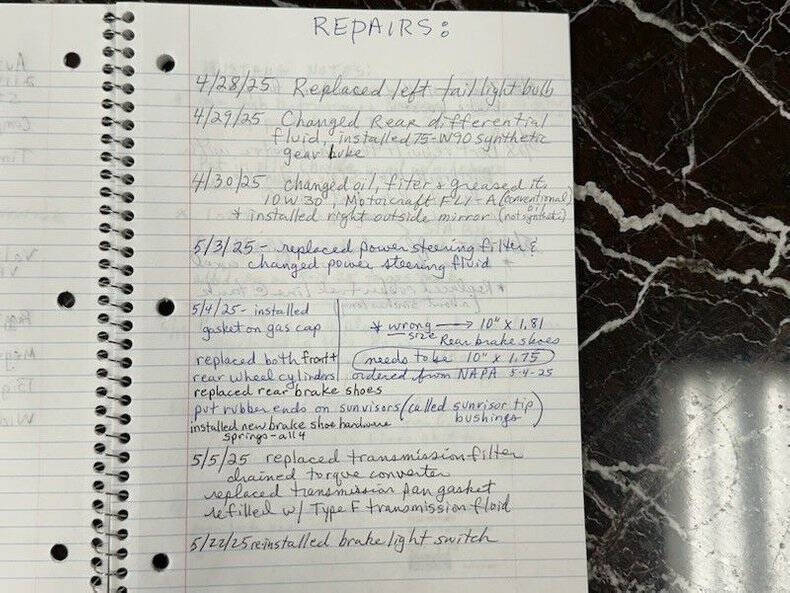 REPAIRS:
4/28/25 Replaced left tail light bulb
4/29/25 Changed Rear differential
fluid, installed 75-W90 synthetic
gear luke
4/30/25 changed oil, fiter & greased it.
10W30, Motorcraft FL1-A (conventional)
* installed right outside mirror (not synthetic)
5/3/25 - replaced power steering filter &
changed power steering fluid
5/4/25 - installed
gasket on gas cap
* wrong → 10" x 1.81
size Rear brake shoes
replaced both front +
rear wheel cylinders
needs to be 10" x 1.75
ordered from NAPA 5-4-25
replaced rear brake shoes
put rubber ends on sunvisors (called sunvisor tip
bushings)
installed new brake shoe hardware
springs - all 4
5/5/25 replaced transmission filter
drained torque converter
replaced transmission pan gasket
refilled w/ Type F transmission fluid
5/22/25 re-installed brake light switch